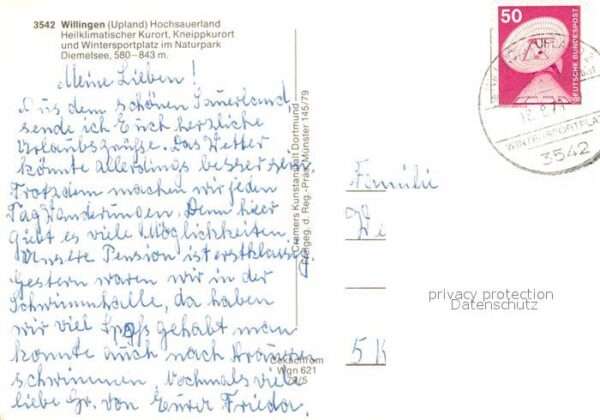 3542 Willingen (Upland) Hochsauerland
Heilklimatischer Kurort, Kneippkurort
und Wintersportplatz im Naturpark
Diemelsee, 580–843 m.
Meine Lieben!
Aus dem schönen Sauerland,
sende ich Euch herzliche
Urlaubsgrüße. Das Wetter
könnte allerdings besser sein
Trotzdem machen wir jeden
Tag Wanderungen. Denn hier
gibt es viele Möglichkeiten
Unsere Pension ist erstklassig
Gestern waren wir in der
Schwimmhalle, da haben
wir viel Spaß gehabt man
konnte auch nach draussen
schwimmen. Nochmals viele
liebe Gr. von Eurer Frieda.
Cramers Kunstanstalt Dortmund
Freigeg. d. Reg.-Präs. Münster 145/79
Cekachrom
Wgn 621
79/5
50
DEUTSCHE BUNDESPOST
UPLAND
WINTERSPORTPLATZ
3542
Familie
We
5 K
privacy protection
Datenschutz